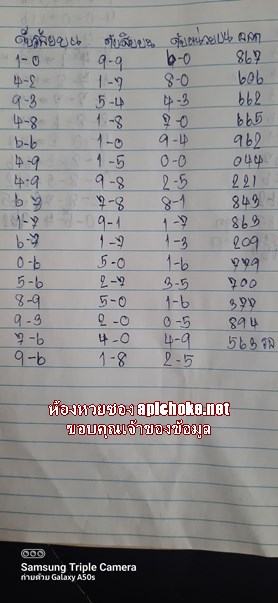 ดับร้อยบน ดับสิบบน ดับหน่วยบน ออก
1-0 9-9 6-0 867
4-2 1-7 8-0 606
9-3 5-4 4-3 662
4-8 1-8 2-0 665
6-6 1-0 9-4 962
4-9 1-5 0-0 044
4-9 9-8 2-5 221
6-7 7-8 8-1 843
1-7 9-1 1-7 863
6-7 1-7 1-3 209
0-6 5-0 1-6 779
5-6 2-7 3-5 700
8-9 5-0 1-6 377
9-3 2-0 0-5 894
7-6 4-0 4-9 563
9-6 1-8 2-5
ห้องหวยซอง apichoke.net
ขอบคุณเจ้าของข้อมูล
Samsung Triple Camera
ถ่ายด้วย Galaxy A50s